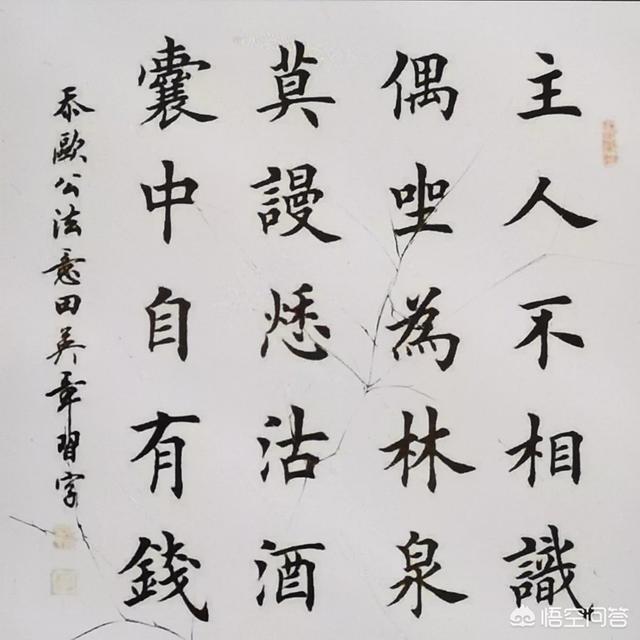 主人不相識
偶坐為林泉
莫謾愁沽酒
囊中自有錢
歐公法意田英章習字
悟空问答